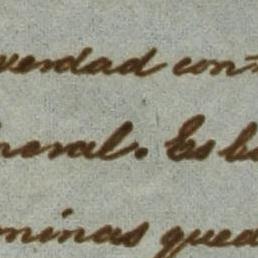 verdad con-
neral. Es b
minas qued